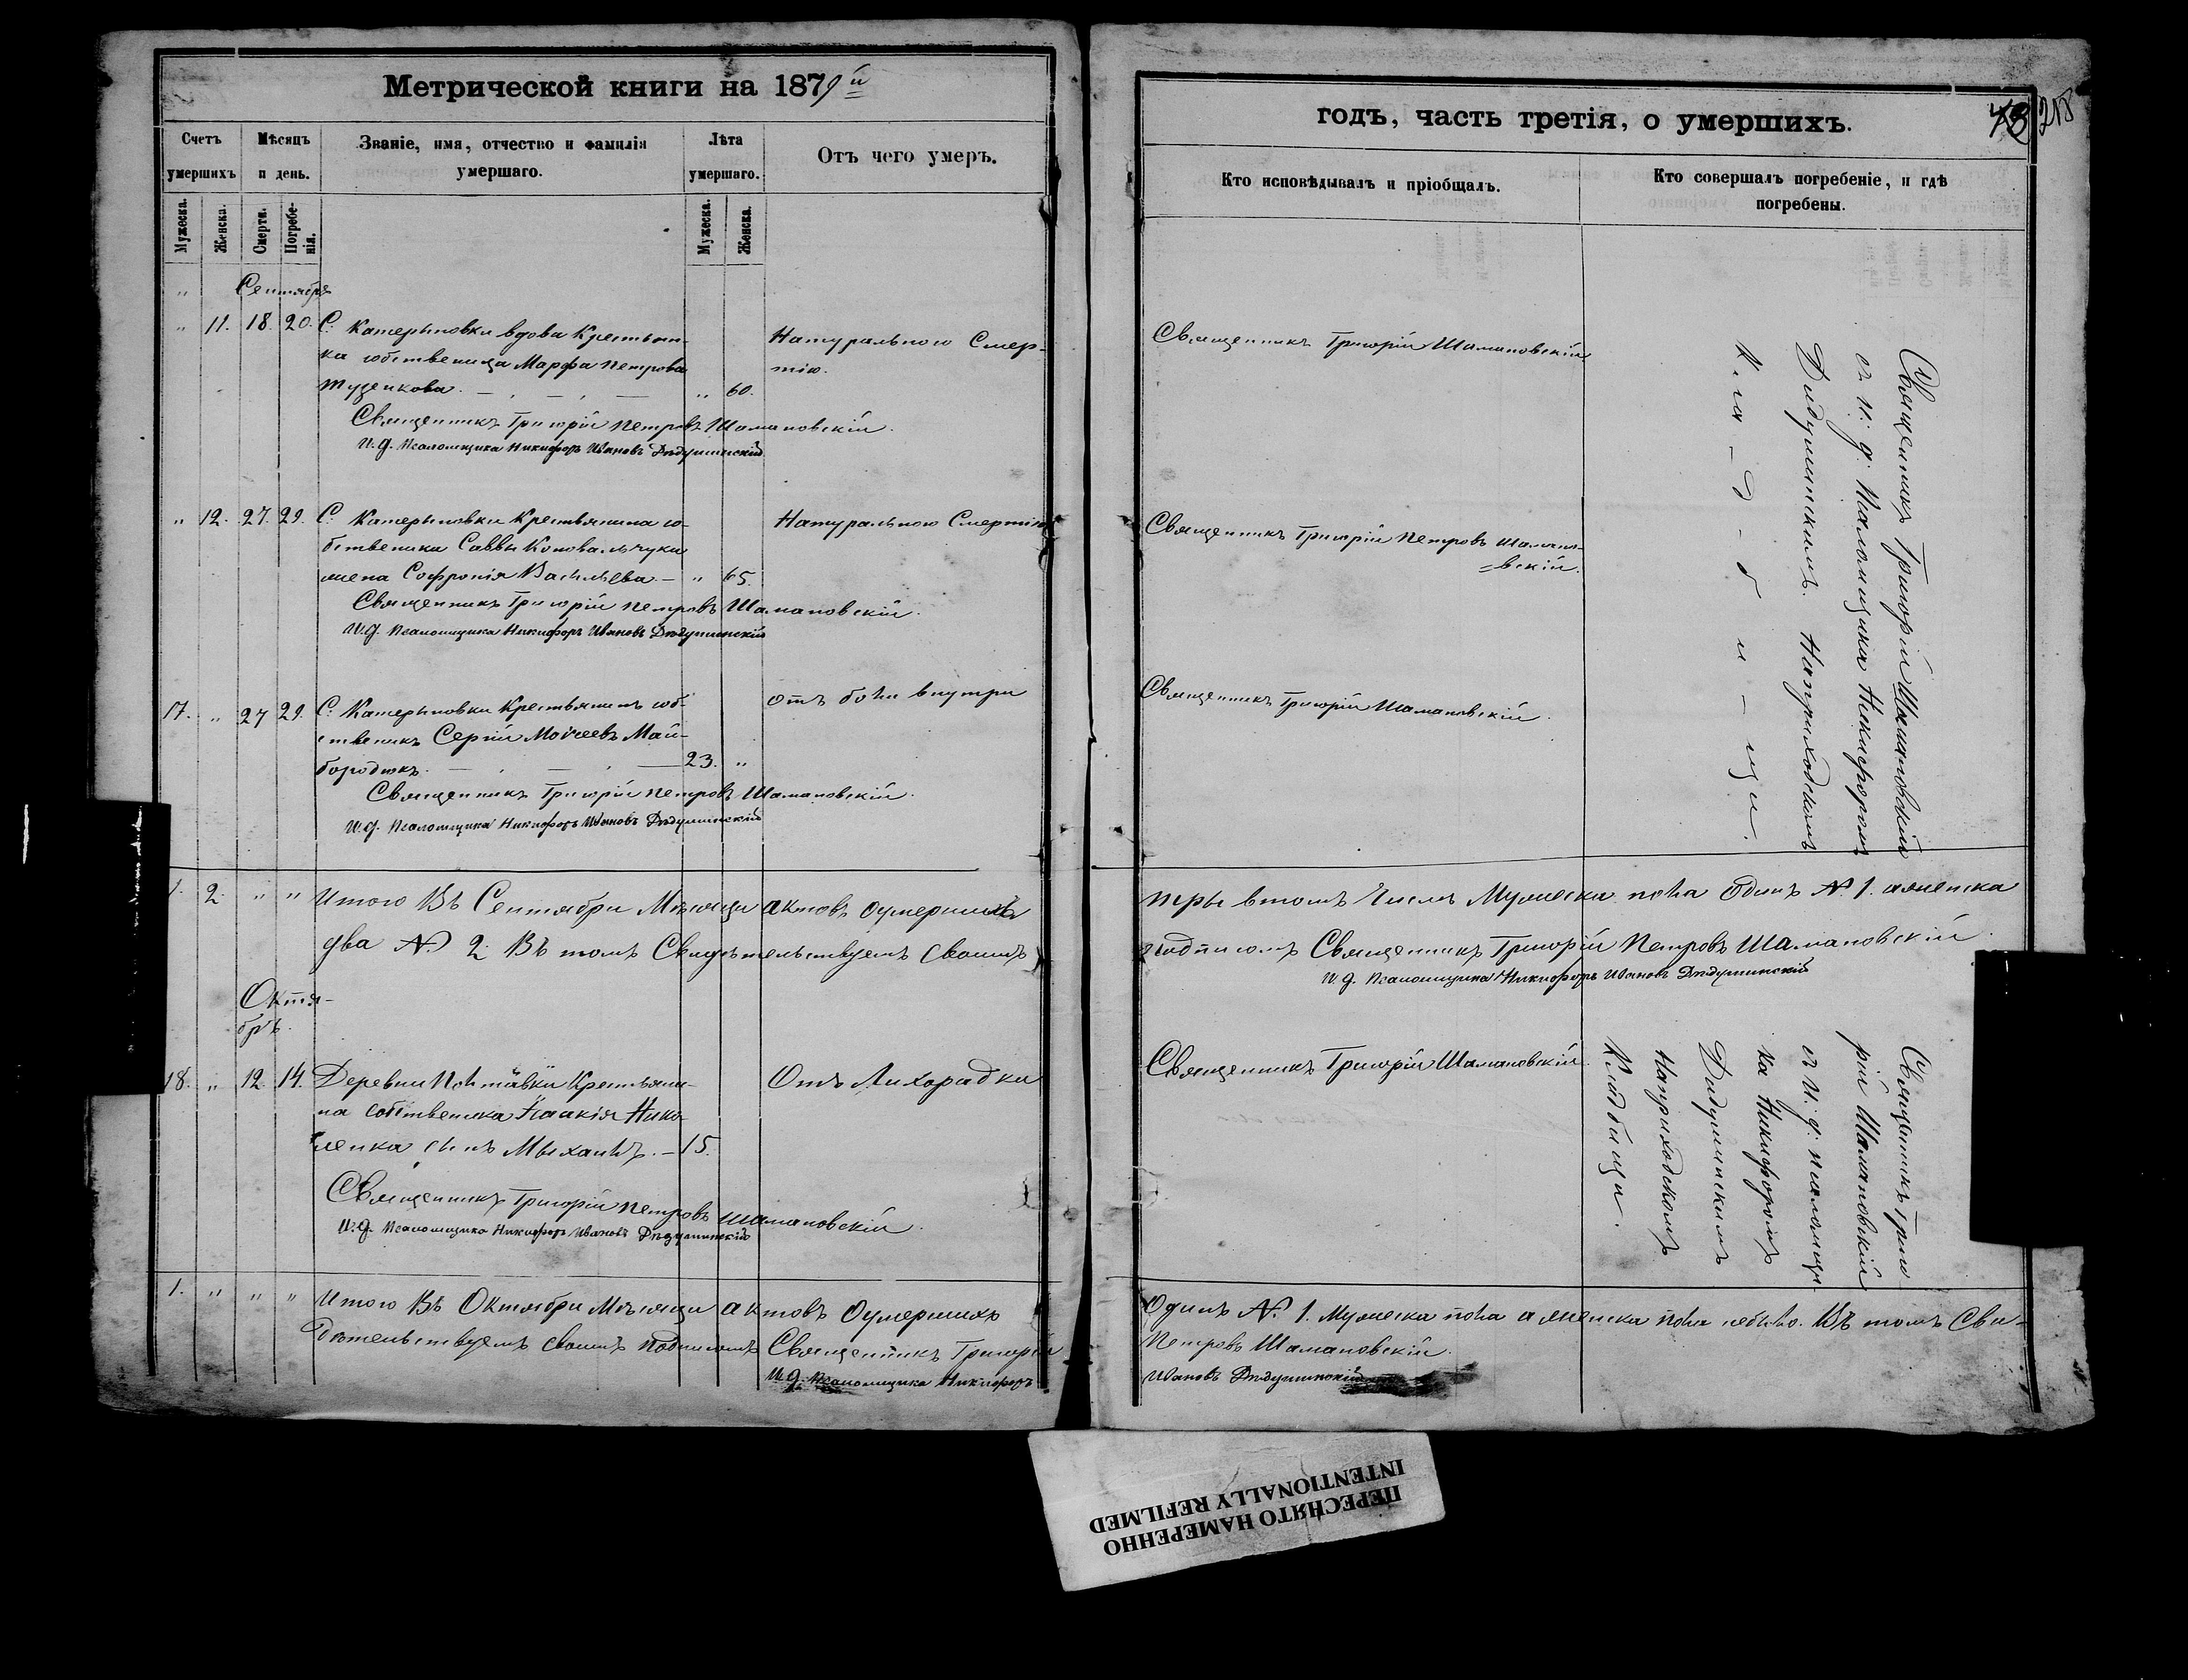 Метрической книги на 1879й
Счетъ умершихъ
Мѣсяцъ и день.
Званіе, имя, отчество и фамилія умершаго.
Лѣта умершаго.
Отъ чего умеръ.
Мужеска.
Женска.
Смерти.
Погребе-
нія.
Мужеска.
Женска.
" Сентября
" 11. 18. 20. С. Катерыновки вдова Крестьян- Натуральною Смер-
ка собственица Марфа Петрова тію.
" 60.
Священникъ Григорій Петровъ Шамановскій.
И. д. Псаломщика Никифоръ Ивановъ Дѣдушинскій
" 12. 27. 29. С. Катерыновки Крестьянина со- Натуральною Смертію
бственика Саввы Коновальчука
жена Софронія Васильева — " 65.
Священникъ Григорій Петровъ Шамановскій.
И. д. Псаломщика Никифоръ Ивановъ Дѣдушинскій
17. " 27 29. С. Катерыновки Крестьянинъ соб- отъ боли внутри
ственикъ Сергій Моисеевъ Май-
бородюкъ. — 23. "
Священникъ Григорій Петровъ Шамановскій.
И. д. Псаломщика Никифоръ Ивановъ Дѣдушинскій
1. 2. " " Итого Въ Сентябри Мѣсяци актовъ оумершихъ
два №. 2. Въ томъ Свидѣтельствуемъ своимъ
Октя-
брь.
18. " 12. 14. Деревни Крестьяни- Отъ Лихорадки
на собственика Исаакія Нико-
ленка сынъ Мыхаилъ. — 15.
Священникъ Григорій Петровъ Шамановскій.
И. д. Псаломщика Никифоръ Ивановъ Дѣдушинскій
1. " " " Итого Въ Октябри Мѣсяци актовъ Оумершихъ
дѣтельствуемъ своимъ подписомъ Священникъ Григорій
И. д. Псаломщика Никифоръ
годъ, часть третія, о умершихъ.
218
Кто исповѣдывалъ и пріобщалъ.
Кто совершалъ погребеніе, и гдѣ
погребены.
Священникъ Григорій Шамановскій.
Священникъ Григорій Петровъ Шамано-
=вскій.
Священникъ Григорій Шамановскій.
Священникъ Григорій Шамановскій
съ И. д. Псаломщика Никифоромъ
Дидушинскимъ. Наприходскомъ
Кла-д-б и-щи.
тры втомъ Числѣ Мужеска пола Одинъ №. 1. аженска
подписомъ Священникъ Григорій Петровъ Шамановскій.
И. д. Псаломщика Никифоръ Ивановъ Дѣдушинскій
Священникъ Григорій Шамановскій.
Священникъ Григо
рій Шамановскій
съ И. д. псаломщи-
ка Никифоромъ
Дидушинскимъ
Наприходскомъ
Кладбищи.
Одинъ №. 1. Мужеска пола а женска пола небыло. Въ томъ Сви-
Петровъ Шамановскій.
Ивановъ Дѣдушинскій
ПЕРЕСНЯТО НАМЕРЕННО
INTENTIONALLY REFILMED